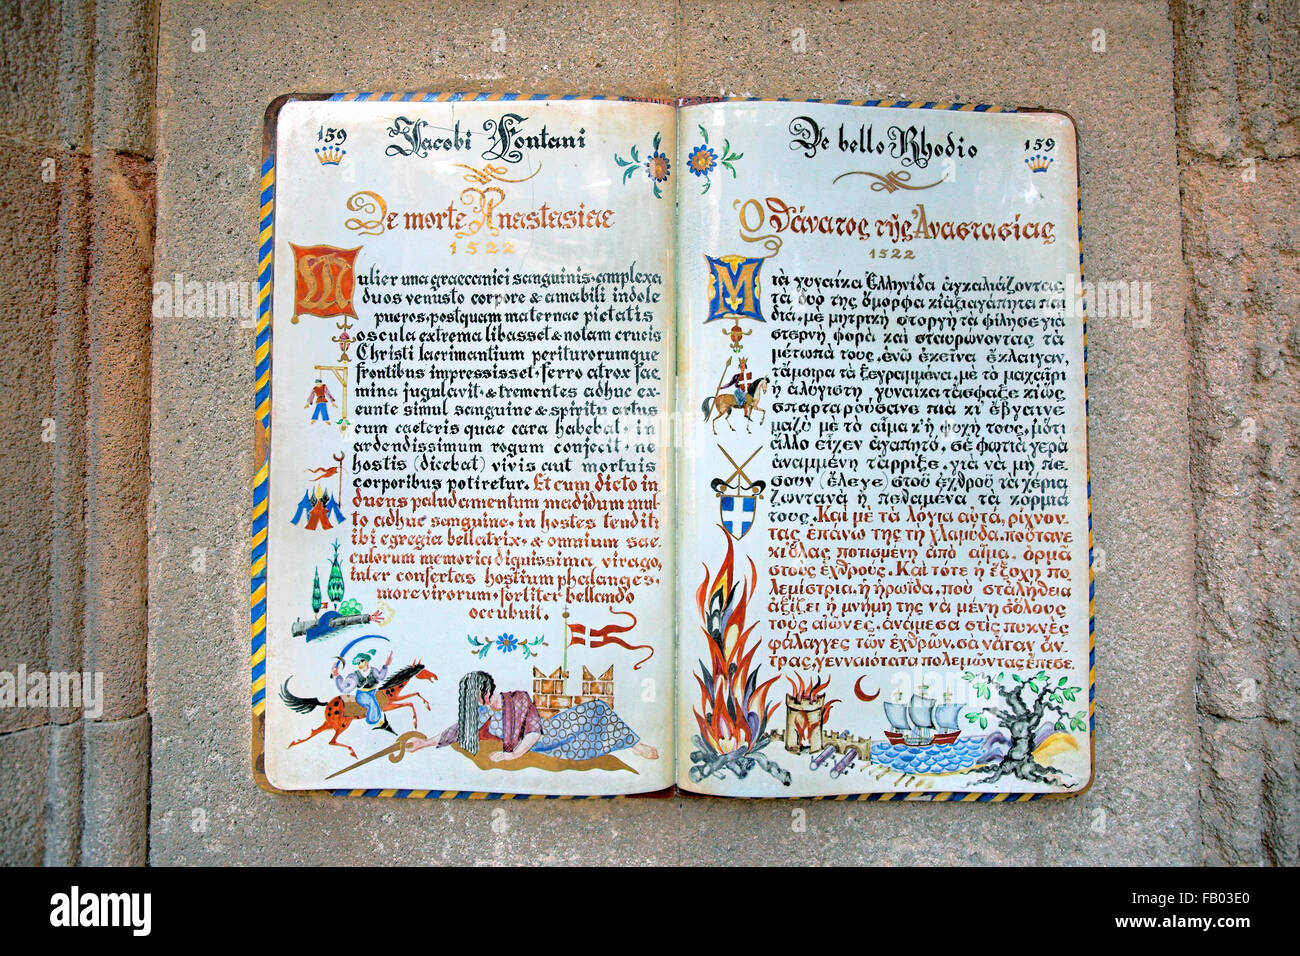 159
Jacobi Fontani
De morte Anastasiae
1522
Mulier una graecanici sanguinis, amplexa
duos venusto corpore & amabili indole
pueros, postquam maternae pietatis
oscula extrema libasset & nolam crucis
Christi lacrimantium periturorumque
frontibus impressisset, ferro atrox sae
mina jugulavit, & trementes adhuc ex=
eunte simul sanguine & spiritu artus
cum caeteris quae cara habebat, in
ardendissimum rogum conjecit, ne
hostis (dicebat) vivis aut mortuis
corporibus potiretur. Et cum dicto in
duens paludamentum madidum mul
to adhuc sanguine, in hostes tendit:
ibi egregia bellatrix, & omnium sae=
culorum memoria dignissima virago,
inter confertas hostium phalanges,
more virorum, fortiter bellando
occubuit.
De bello Rhodio
159
Ὁ θάνατος τῆς Ἀναστασίας
1522
Μιὰ γυναίκα Ἑλληνίδα ἀγκαλιάζοντας
τὰ δυό της ὄμορφα κι ἀξιαγάπητα παι
διά, μὲ μητρικὴ στοργὴ τὰ φίλησε γιὰ
στερνὴ φορὰ καὶ σταυρώνοντας τὰ
μέτωπά τους, ἐνῶ ἐκεῖνα ἔκλαιγαν,
τἄμοιρα τὰ ξεγραμμένα, μὲ τὸ μαχαῖρι
ἡ ἀλύγιστη γυναίκα τἄσφαξε κι ὅπως
σπαρταρούσανε πιὰ κι' ἔβγαινε
μαζὺ μὲ τὸ αἷμα κ' ἡ ψυχή τους, μ' ὅτι
ἄλλο εἶχεν ἀγαπητό, σὲ φωτιὰ γερὰ
ἀναμμένη τἄρριξε, γιὰ νὰ μὴ πέ
σουν (ἔλεγε) στοῦ ἐχθροῦ τὰ χέρια
ζωντανὰ ἢ πεθαμένα τὰ κορμιά
τους. Καὶ μὲ τὰ λόγια αὐτά, ρίχνον
τας ἐπάνω της τὴ χλαμύδα, ποὔτανε
κιόλας ποτισμένη ἀπὸ αἷμα, ὁρμᾶ
στοὺς ἐχθρούς. Καὶ τότε ἡ ἔξοχη πο
λεμίστρια, ἡ ἡρωΐδα, ποὺ στ' ἀλήθεια
ἀξίζει ἡ μνήμη της νὰ μένῃ σ' ὅλους
τοὺς αἰῶνες, ἀνάμεσα στὶς πυκνὲς
φάλαγγες τῶν ἐχθρῶν, σὰ νἄταν ἄν
τρας, γενναιότατα πολεμῶντας ἔπεσε.
alamy stock photo
FB03E0
www.alamy.com